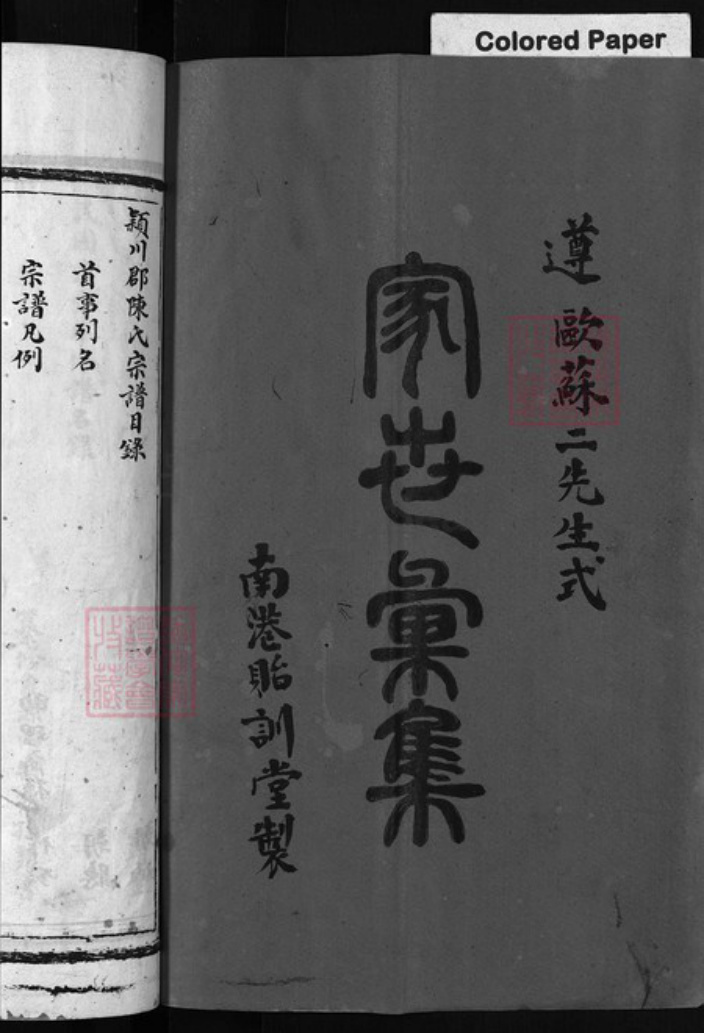 Colored Paper
遵歐蘇二先生式
家世彙集
南港貽訓堂製
潁川郡陳氏宗譜目錄
首事列名
宗譜凡例